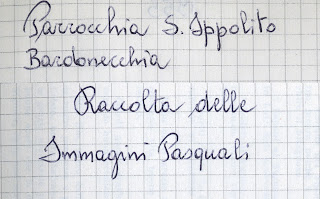 Parrocchia S. Ippolito
Bardonecchia
Raccolta delle
Immagini Pasquali